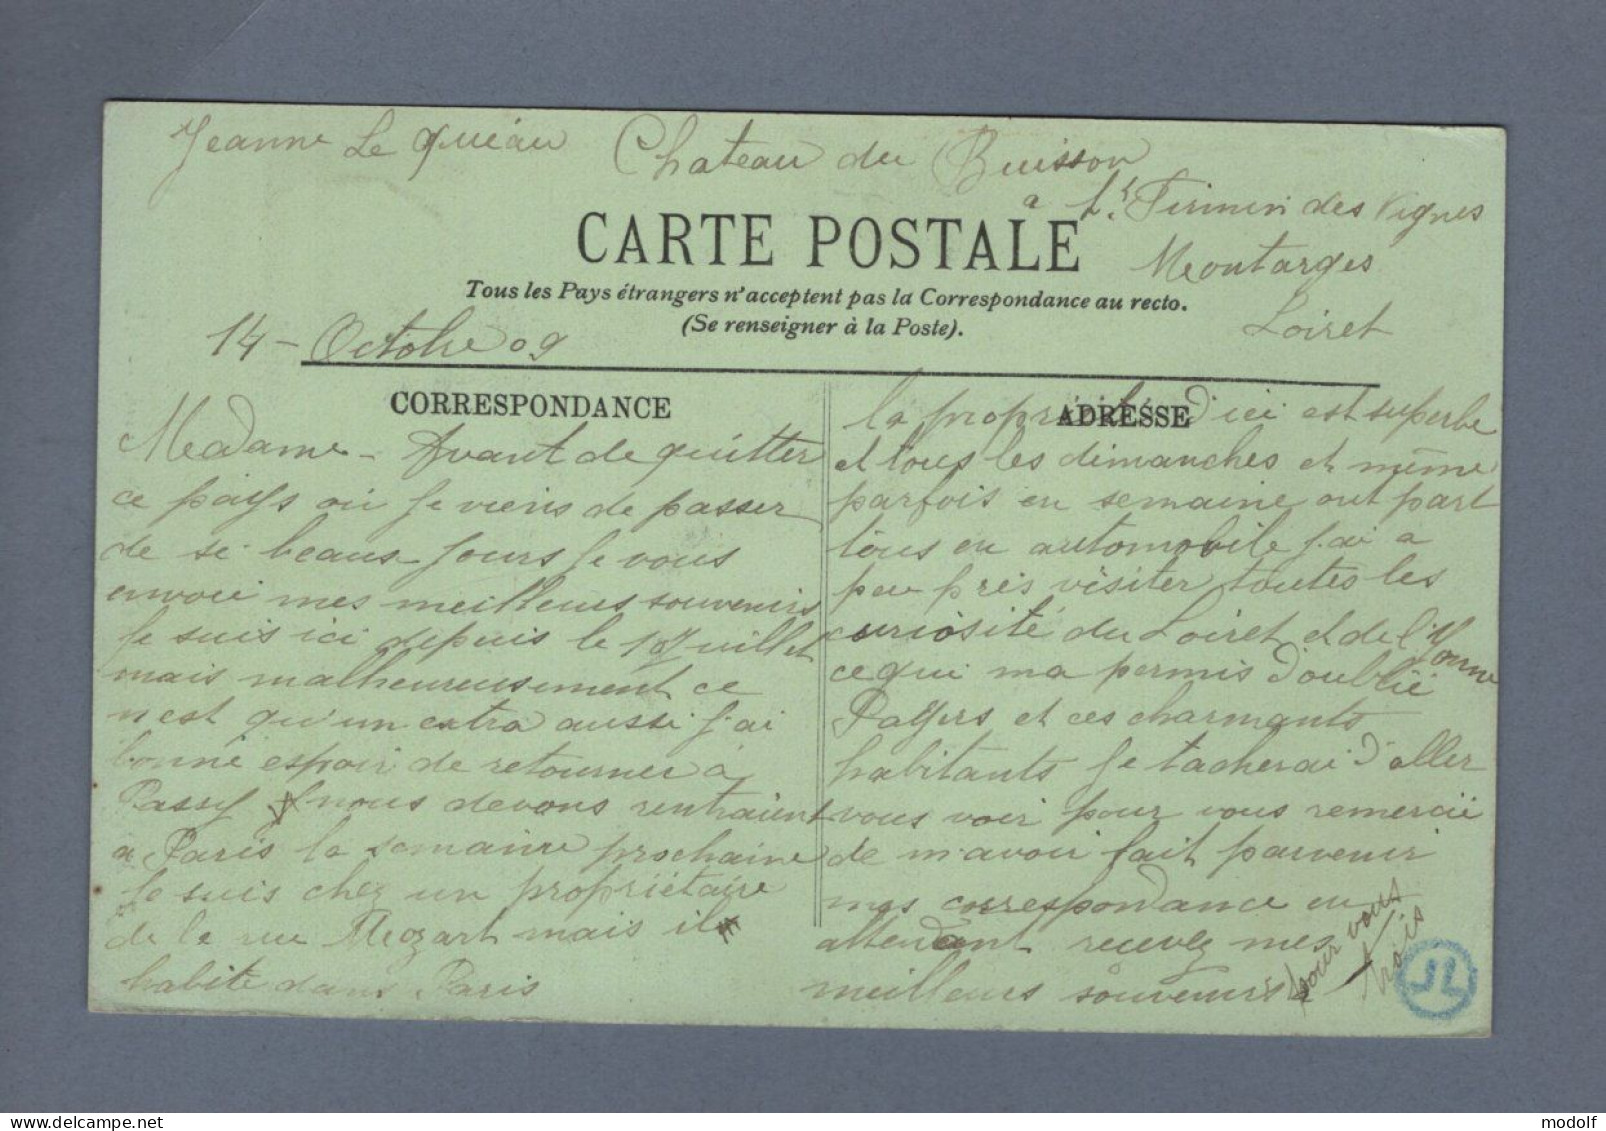 Jeanne Le Quéau Château du Buisson
a St Firmin des Vignes
Montarges
Loiret
CARTE POSTALE
Tous les Pays étrangers n'acceptent pas la Correspondance au recto.
(Se renseigner à la Poste).
14 - Octobre 09
CORRESPONDANCE
Madame - Avant de quitter
ce pays où je viens de passer
de si beaux jours je vous
envoie mes meilleurs souvenirs
je suis ici depuis le 1er juillet
mais malheureusement ce
n'est qu'un extra aussi j'ai
bonne espoir de retourner à
Passy nous devons rentraient
a Paris la semaine prochaine
je suis chez un propriétaire
de la rue Mozart mais il
habite dans Paris
ADRESSE
la propriété d'ici est superbe
et tous les dimanches et même
parfois en semaine ont part
tous en automobile j'ai a
peu près visiter toutes les
curiosité du Loiret et de l'Yonne
ce qui ma permis d'oublié
et ces charmants
habitants je tacherai d'aller
vous voir pour vous remercié
de m'avoir fait parvenir
mes correspondance en
attendant recevez mes
meilleurs souvenirs
pour vous
trois
JL
modolf